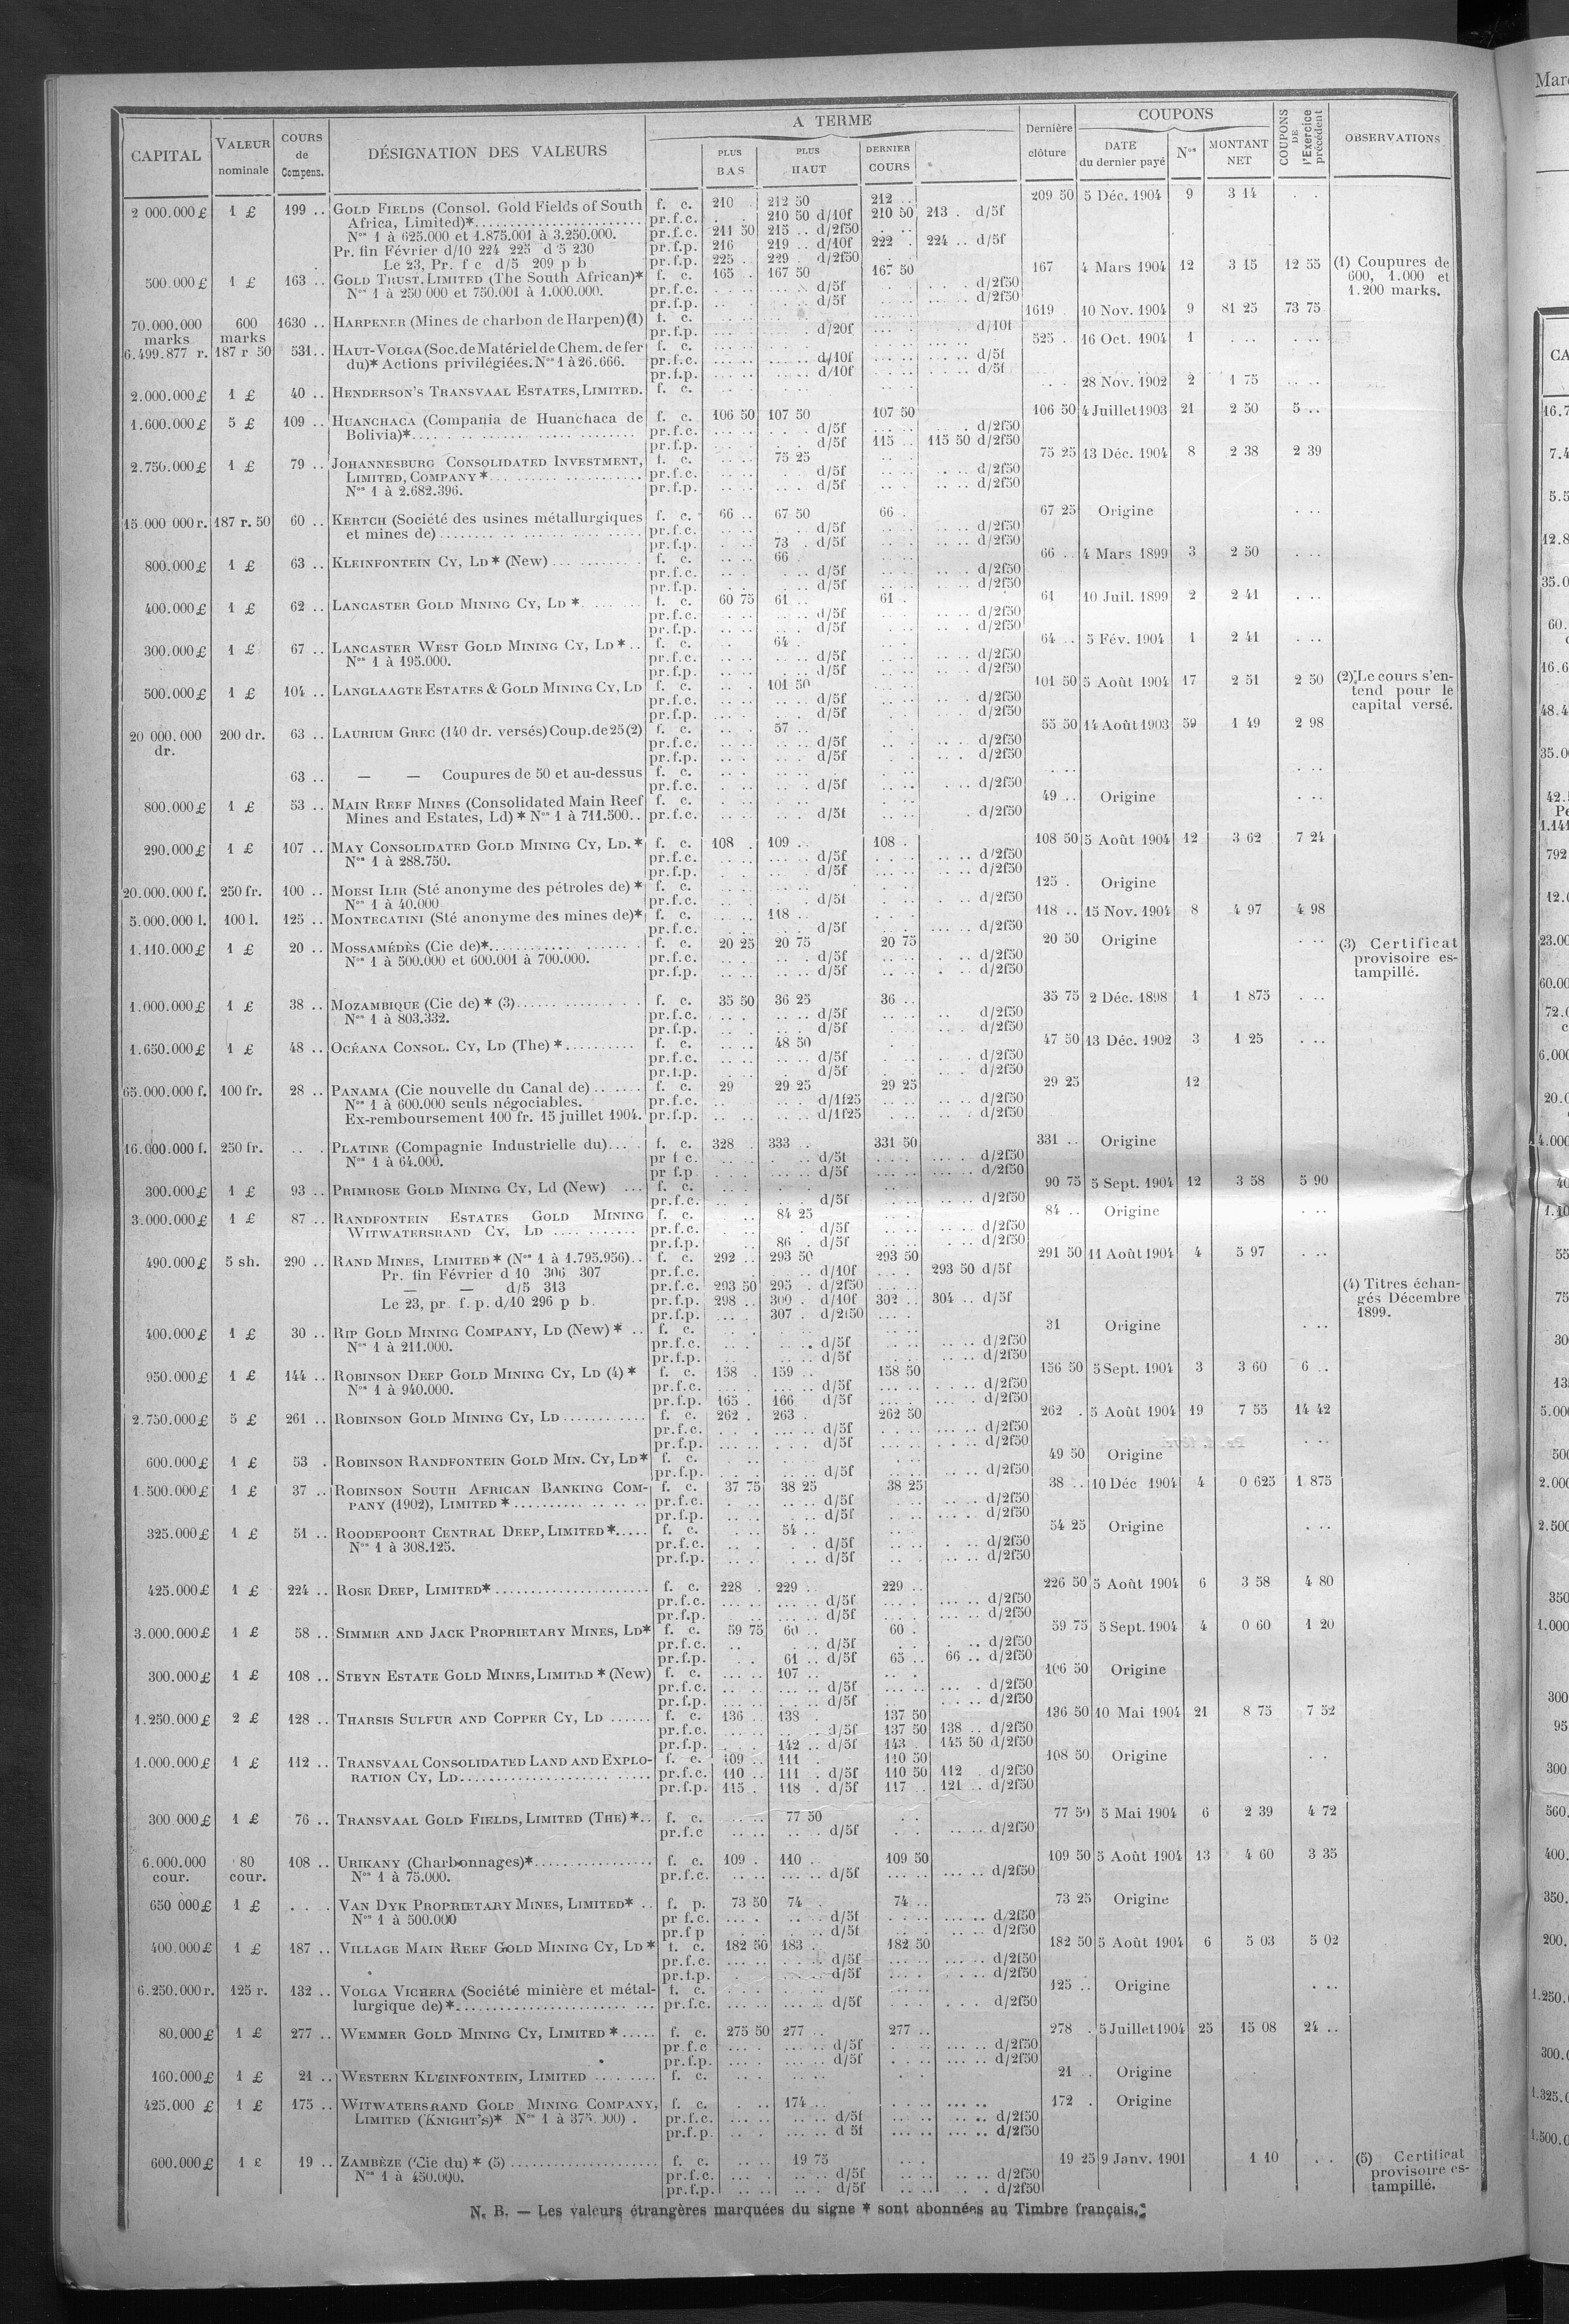 A TERME
COUPONS
CAPITAL VALEUR nominale COURS de Compens. DÉSIGNATION DES VALEURS PLUS BAS PLUS HAUT DERNIER COURS Dernière clôture DATE du dernier payé Nos MONTANT NET COUPONS DE l'Exercice précédent OBSERVATIONS
2 000.000 £ 1 £ 199 .. GOLD FIELDS (Consol. Gold Fields of South f. c. 210 212 50 212 .. 209 50 5 Déc. 1904 9 3 14 . .
Africa, Limited)* pr.f.c. 210 50 d/10f 210 50 213 . d/5f
Nos 1 à 625.000 et 1.875.001 à 3.250.000. pr.f.c. 211 50 215 .. d/2f50
Pr. fin Février d/10 224 225 d 5 230 pr.f.p. 216 219 .. d/10f 222 . 224 .. d/5f
Le 23, Pr. f c d/5 209 p b pr.f.p. 225 .. 229 . d/2f50
500.000 £ 1 £ 163 .. GOLD TRUST, LIMITED (The South African)* f. c. 165 . 167 50 167 50 167 4 Mars 1904 12 3 15 12 55 (1) Coupures de
Nos 1 à 250 000 et 750.001 à 1.000.000. pr.f.c. d/5f d/2f50 600, 1.000 et
pr.f.p. d/5f d/2f50 1.200 marks.
70.000.000 600 1630 .. HARPENER (Mines de charbon de Harpen) (1) f. c. 1619 . 10 Nov. 1904 9 81 25 73 75
marks marks pr.f.p. d/20f d/10f
6.499.877 r. 187 r 50 531 .. HAUT-VOLGA (Soc. de Matériel de Chem. de fer f. c. 525 .. 16 Oct. 1904 1
du)* Actions privilégiées. Nos 1 à 26.666. pr.f.c. d/10f d/5f
pr.f.p. d/10f d/5f
2.000.000 £ 1 £ 40 .. HENDERSON'S TRANSVAAL ESTATES, LIMITED. f. c. 28 Nov. 1902 2 1 75
1.600.000 £ 5 £ 109 .. HUANCHACA (Compania de Huanchaca de f. c. 106 50 107 50 107 50 106 50 4 Juillet 1903 21 2 50 5 ..
Bolivia)* pr.f.c. d/5f d/2f50
pr.f.p. d/5f 115 .. 115 50 d/2f50
2.750.000 £ 1 £ 79 .. JOHANNESBURG CONSOLIDATED INVESTMENT, f. c. 75 25 75 25 13 Déc. 1904 8 2 38 2 39
LIMITED, COMPANY * pr.f.c. d/5f d/2f50
Nos 1 à 2.682.396. pr.f.p. d/5f d/2f50
15.000 000 r. 187 r. 50 60 .. KERTCH (Société des usines métallurgiques f. c. 66 .. 67 50 66 . 67 25 Origine
et mines de) pr.f.c. d/5f d/2f50
pr.f.p. 73 . d/5f d/2f50
800.000 £ 1 £ 63 .. KLEINFONTEIN CY, LD * (New) f. c. 66 . 66 .. 4 Mars 1899 3 2 50
pr.f.c. d/5f d/2f50
pr.f.p. d/5f d/2f50
400.000 £ 1 £ 62 .. LANCASTER GOLD MINING CY, LD * f. c. 60 75 61 .. 61 . 61 10 Juil. 1899 2 2 41
pr.f.c. d/5f d/2f50
pr.f.p. d/5f d/2f50
300.000 £ 1 £ 67 .. LANCASTER WEST GOLD MINING CY, LD * f. c. 64 . 64 .. 5 Fév. 1904 1 2 41
Nos 1 à 195.000. pr.f.c. d/5f d/2f50
pr.f.p. d/5f d/2f50
500.000 £ 1 £ 104 .. LANGLAAGTE ESTATES & GOLD MINING CY, LD f. c. 101 50 101 50 5 Août 1904 17 2 51 2 50 (2) Le cours s'en-
pr.f.c. d/5f d/2f50 tend pour le
pr.f.p. d/5f d/2f50 capital versé.
20 000.000 200 dr. 63 .. LAURIUM GREC (140 dr. versés) Coup. de 25 (2) f. c. 57 .. 55 50 14 Août 1903 59 1 49 2 98
dr. pr.f.c. d/5f d/2f50
pr.f.p. d/5f d/2f50
63 .. — — Coupures de 50 et au-dessus f. c.
pr.f.c. d/5f d/2f50
800.000 £ 1 £ 53 .. MAIN REEF MINES (Consolidated Main Reef f. c. 49 .. Origine
Mines and Estates, Ld) * Nos 1 à 711.500. pr.f.c. d/5f d/2f50
290.000 £ 1 £ 107 .. MAY CONSOLIDATED GOLD MINING CY, LD. * f. c. 108 . 109 .. 108 . 108 50 5 Août 1904 12 3 62 7 24
Nos 1 à 288.750. pr.f.c. d/5f d/2f50
pr.f.p. d/5f d/2f50
20.000.000 f. 250 fr. 100 .. MOESI ILIR (Sté anonyme des pétroles de) * f. c. 125 . Origine
Nos 1 à 40.000 pr.f.c. d/5f d/2f50
5.000.000 l. 100 l. 125 .. MONTECATINI (Sté anonyme des mines de)* f. c. 118 .. 118 .. 15 Nov. 1904 8 4 97 4 98
pr.f.c. d/5f d/2f50
1.110.000 £ 1 £ 20 .. MOSSAMÉDÈS (Cie de)* f. c. 20 25 20 75 20 75 20 50 Origine (3) Certificat
Nos 1 à 500.000 et 600.001 à 700.000. pr.f.c. d/5f d/2f50 provisoire es-
pr.f.p. d/5f d/2f50 tampillé.
1.000.000 £ 1 £ 38 .. MOZAMBIQUE (Cie de) * (3) f. c. 35 50 36 25 36 .. 35 75 2 Déc. 1898 1 1 875
Nos 1 à 803.332. pr.f.c. d/5f d/2f50
pr.f.p. d/5f d/2f50
1.650.000 £ 1 £ 48 .. OCÉANA CONSOL. CY, LD (The) * f. c. 48 50 47 50 13 Déc. 1902 3 1 25
pr.f.c. d/5f d/2f50
pr.f.p. d/5f d/2f50
65.000.000 f. 100 fr. 28 .. PANAMA (Cie nouvelle du Canal de) f. c. 29 29 25 29 25 29 25 12
Nos 1 à 600.000 seuls négociables. pr.f.c. d/1f25 d/2f50
Ex-remboursement 100 fr. 15 juillet 1904. pr.f.p. d/1f25 d/2f50
16.000.000 f. 250 fr. PLATINE (Compagnie Industrielle du) f. c. 328 . 333 .. 331 50 331 .. Origine
Nos 1 à 64.000. pr f c. d/5f d/2f50
pr f.p. d/5f d/2f50
300.000 £ 1 £ 93 .. PRIMROSE GOLD MINING CY, Ld (New) f. c. 90 75 5 Sept. 1904 12 3 58 5 90
pr.f.c. d/5f d/2f50
3.000.000 £ 1 £ 87 .. RANDFONTEIN ESTATES GOLD MINING f. c. 84 25 84 .. Origine
WITWATERSRAND CY, LD pr.f.c. d/5f d/2f50
pr.f.p. 86 . d/5f d/2f50
490.000 £ 5 sh. 290 .. RAND MINES, LIMITED * (Nos 1 à 1.795.956) f. c. 292 .. 293 50 293 50 291 50 11 Août 1904 4 5 97
Pr. fin Février d 10 306 307 pr.f.c. d/10f 293 50 d/5f
— — d/5 313 pr.f.c. 293 50 295 . d/2f50 (4) Titres échan-
Le 23, pr. f. p. d/10 296 p b. pr.f.p. 298 .. 300 . d/10f 302 .. 304 .. d/5f gés Décembre
pr.f.p. 307 . d/2f50 1899.
400.000 £ 1 £ 30 .. RIP GOLD MINING COMPANY, LD (New) * f. c. 31 Origine
Nos 1 à 211.000. pr.f.c. d/5f d/2f50
pr.f.p. d/5f d/2f50
950.000 £ 1 £ 144 .. ROBINSON DEEP GOLD MINING CY, LD (4) * f. c. 158 . 159 .. 158 50 156 50 5 Sept. 1904 3 3 60 6 ..
Nos 1 à 940.000. pr.f.c. d/5f d/2f50
pr.f.p. 165 . 166 d/5f d/2f50
2.750.000 £ 5 £ 261 .. ROBINSON GOLD MINING CY, LD f. c. 262 . 263 . 262 50 262 . 5 Août 1904 19 7 55 14 42
pr.f.c. d/5f d/2f50
pr.f.p. d/5f d/2f50
600.000 £ 1 £ 53 . ROBINSON RANDFONTEIN GOLD MIN. CY, LD* f. c. 49 50 Origine
pr.f.p. d/5f d/2f50
1.500.000 £ 1 £ 37 .. ROBINSON SOUTH AFRICAN BANKING COM- f. c. 37 75 38 25 38 25 38 .. 10 Déc 1904 4 0 625 1 875
PANY (1902), LIMITED * pr.f.c. d/5f d/2f50
pr.f.p. d/5f d/2f50
325.000 £ 1 £ 51 .. ROODEPOORT CENTRAL DEEP, LIMITED * f. c. 54 .. 54 25 Origine
Nos 1 à 308.125. pr.f.c. d/5f d/2f50
pr.f.p. d/5f d/2f50
425.000 £ 1 £ 224 .. ROSE DEEP, LIMITED* f. c. 228 . 229 .. 229 .. 226 50 5 Août 1904 6 3 58 4 80
pr.f.c. d/5f d/2f50
pr.f.p. d/5f d/2f50
3.000.000 £ 1 £ 58 .. SIMMER AND JACK PROPRIETARY MINES, LD* f. c. 59 75 60 .. 60 . 59 75 5 Sept. 1904 4 0 60 1 20
pr.f.c. d/5f d/2f50
pr.f.p. 61 .. d/5f 65 .. 66 .. d/2f50
300.000 £ 1 £ 108 .. STEYN ESTATE GOLD MINES, LIMITED * (New) f. c. 107 .. 106 50 Origine
pr.f.c. d/5f d/2f50
pr.f.p. d/5f d/2f50
1.250.000 £ 2 £ 128 .. THARSIS SULFUR AND COPPER CY, LD f. c. 136 .. 138 . 137 50 136 50 10 Mai 1904 21 8 75 7 52
pr.f.c. d/5f 137 50 138 .. d/2f50
pr.f.p. 142 .. d/5f 143 . 145 50 d/2f50
1.000.000 £ 1 £ 112 .. TRANSVAAL CONSOLIDATED LAND AND EXPLO- f. c. 109 .. 111 . 110 50 108 50 Origine
RATION CY, LD pr.f.c. 110 .. 111 . d/5f 110 50 112 . d/2f50
pr.f.p. 115 . 118 . d/5f 117 .. 121 .. d/2f50
300 000 £ 1 £ 76 .. TRANSVAAL GOLD FIELDS, LIMITED (THE) * f. c. 77 50 77 50 5 Mai 1904 6 2 39 4 72
pr.f.c d/5f d/2f50
6.000.000 80 108 .. URIKANY (Charbonnages)* f. c. 109 . 110 .. 109 50 109 50 5 Août 1904 13 4 60 3 35
cour. cour. Nos 1 à 75.000. pr.f.c. d/5f d/2f50
650 000 £ 1 £ VAN DYK PROPRIETARY MINES, LIMITED* f. p. 73 50 74 . 74 .. 73 25 Origine
Nos 1 à 500.000 pr f.c. d/5f d/2f50
pr.f p d/5f d/2f50
400.000 £ 1 £ 187 .. VILLAGE MAIN REEF GOLD MINING CY, LD * f. c. 182 50 183 . 182 50 182 50 5 Août 1904 6 5 03 5 02
pr.f.c. d/5f d/2f50
pr.f.p. d/5f d/2f50
6.250.000 r. 125 r. 132 .. VOLGA VICHERA (Société minière et métal- f. c. 125 .. Origine
lurgique de)* pr.f.c. d/5f d/2f50
80.000 £ 1 £ 277 .. WEMMER GOLD MINING CY, LIMITED * f. c. 275 50 277 .. 277 .. 278 . 5 Juillet 1904 25 15 08 24 ..
pr f.c d/5f d/2f50
pr.f.p. d/5f d/2f50
160.000 £ 1 £ 21 .. WESTERN KLEINFONTEIN, LIMITED f. c. 21 . Origine
425.000 £ 1 £ 175 .. WITWATERSRAND GOLD MINING COMPANY, f. c. 174 .. 172 . Origine
LIMITED (KNIGHT'S)* Nos 1 à 375.000) . pr.f.c. d/5f d/2f50
pr.f.p. d 5f d/2f50
600.000 £ 1 £ 19 .. ZAMBÈZE (Cie du) * (5) f. c. 19 75 19 25 9 Janv. 1901 1 10 (5) Certificat
Nos 1 à 450.000. pr.f.c. d/5f d/2f50 provisoire es-
pr.f.p. d/5f d/2f50 tampillé.
N. B. — Les valeurs étrangères marquées du signe * sont abonnées au Timbre français.